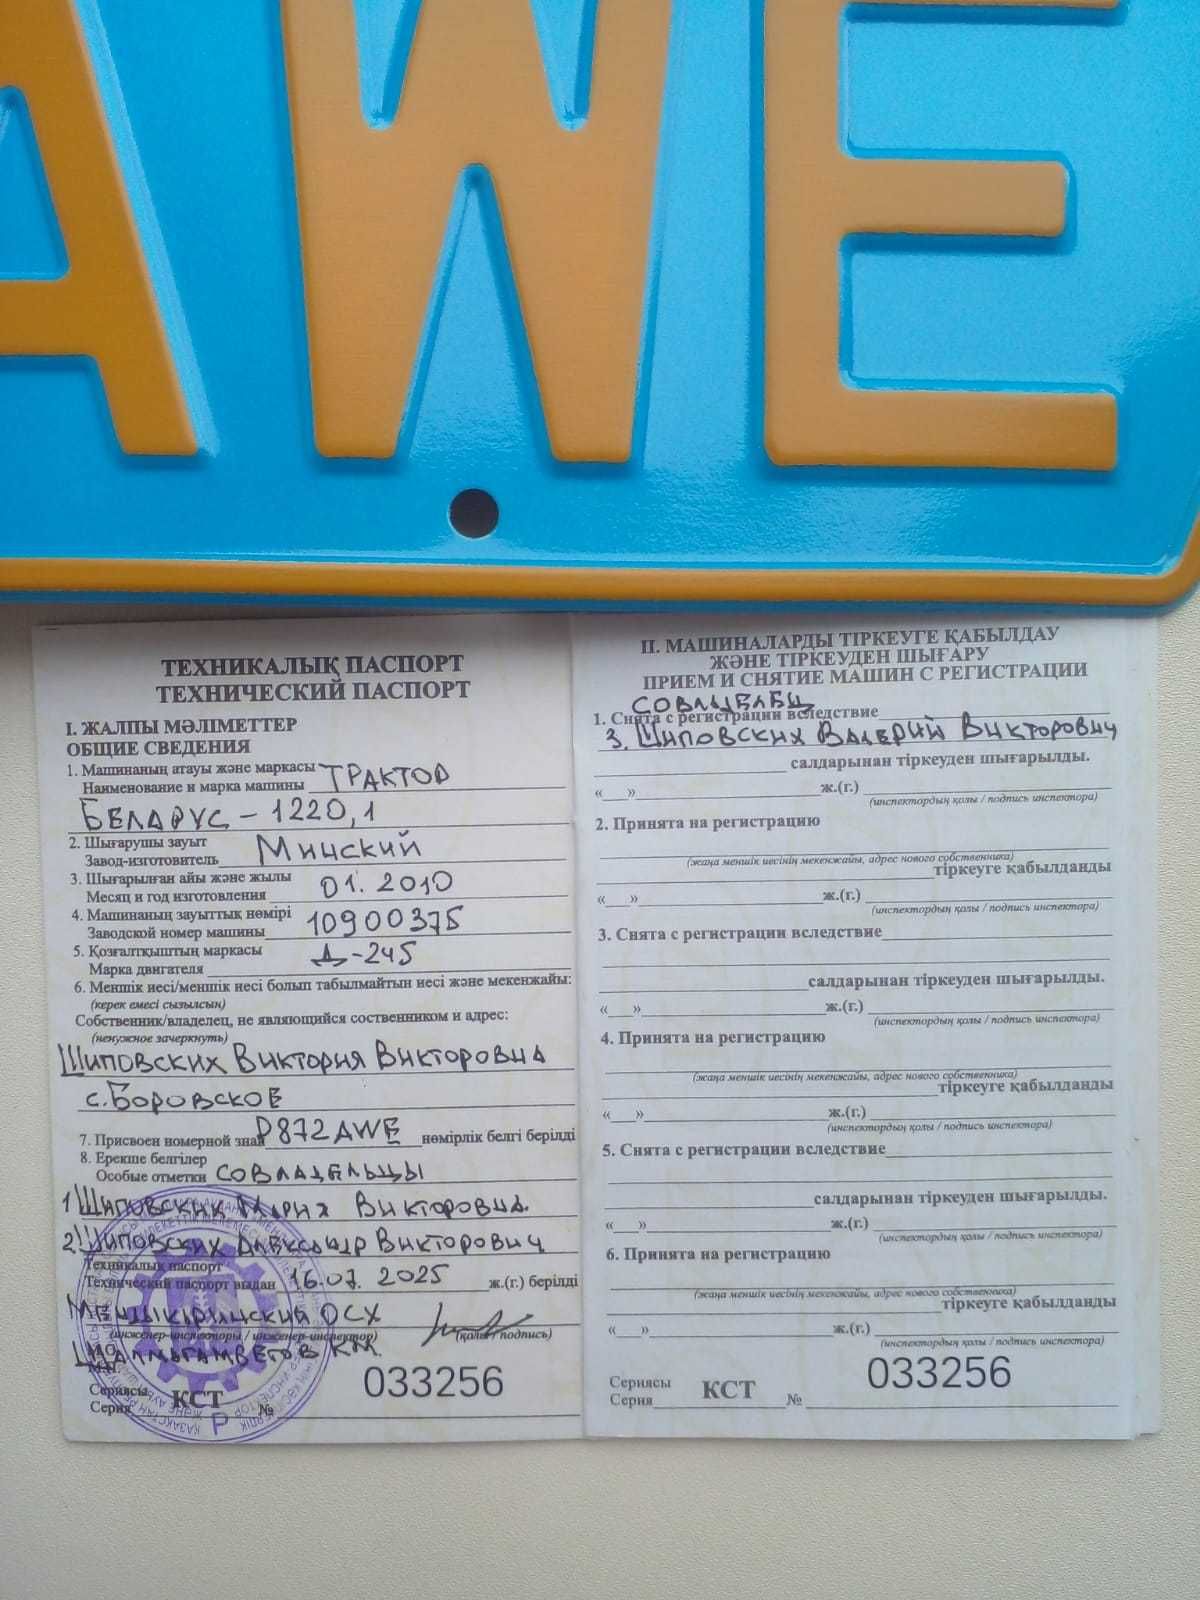 AWE
ТЕХНИКАЛЫҚ ПАСПОРТ
ТЕХНИЧЕСКИЙ ПАСПОРТ
I. ЖАЛПЫ МӘЛІМЕТТЕР
ОБЩИЕ СВЕДЕНИЯ
1. Машинаның атауы және маркасы
Наименование и марка машины ТРАКТОР
БЕЛАРУС - 1220,1
2. Шығарушы зауыт
Завод-изготовитель Минский
3. Шығарылған айы және жылы
Месяц и год изготовления 01. 2010
4. Машинаның зауыттық нөмірі
Заводской номер машины 10900375
5. Қозғалтқыштың маркасы
Марка двигателя Д-245
6. Меншік иесі/меншік иесі болып табылмайтын иесі және мекенжайы:
(керек емесі сызылсын)
Собственник/владелец, не являющийся соственником и адрес:
(ненужное зачеркнуть)
Шиповских Виктория Викторовна
с. Боровское
7. Присвоен номерной знак P872AWE нөмірлік белгі берілді
8. Ерекше белгілер
Особые отметки СОВЛАДЕЛЬЦЫ
1 Шиповских Мария Викторовна.
2. Шиповских Александр Викторович
Техникалық паспорт
Технический паспорт выдан 16.07. 2025 ж.(г.) берілді
ОСХ
(инженер-инспекторы / инженер-инспектор) (қолы / подпись)
К.М.
Сериясы
Серия КСТ № 033256
Р
II. МАШИНАЛАРДЫ ТІРКЕУГЕ ҚАБЫЛДАУ
ЖӘНЕ ТІРКЕУДЕН ШЫҒАРУ
ПРИЕМ И СНЯТИЕ МАШИН С РЕГИСТРАЦИИ
СОВЛАДЕЛЕЦ
1. Снята с регистрации вследствие
3. Шиповских Валерий Викторович
салдарынан тіркеуден шығарылды.
«__»________ ж.(г.)
(инспектордың қолы / подпись инспектора)
2. Принята на регистрацию
(жаңа меншік иесінің мекенжайы, адрес нового собственника)
тіркеуге қабылданды
«__»________ ж.(г.)
(инспектордың қолы / подпись инспектора)
3. Снята с регистрации вследствие
салдарынан тіркеуден шығарылды.
«__»________ ж.(г.)
(инспектордың қолы / подпись инспектора)
4. Принята на регистрацию
(жаңа меншік иесінің мекенжайы, адрес нового собственника)
тіркеуге қабылданды
«__»________ ж.(г.)
(инспектордың қолы / подпись инспектора)
5. Снята с регистрации вследствие
салдарынан тіркеуден шығарылды.
«__»________ ж.(г.)
(инспектордың қолы / подпись инспектора)
6. Принята на регистрацию
(жаңа меншік иесінің мекенжайы, адрес нового собственника)
тіркеуге қабылданды
«__»________ ж.(г.)
(инспектордың қолы / подпись инспектора)
Сериясы
Серия КСТ № 033256